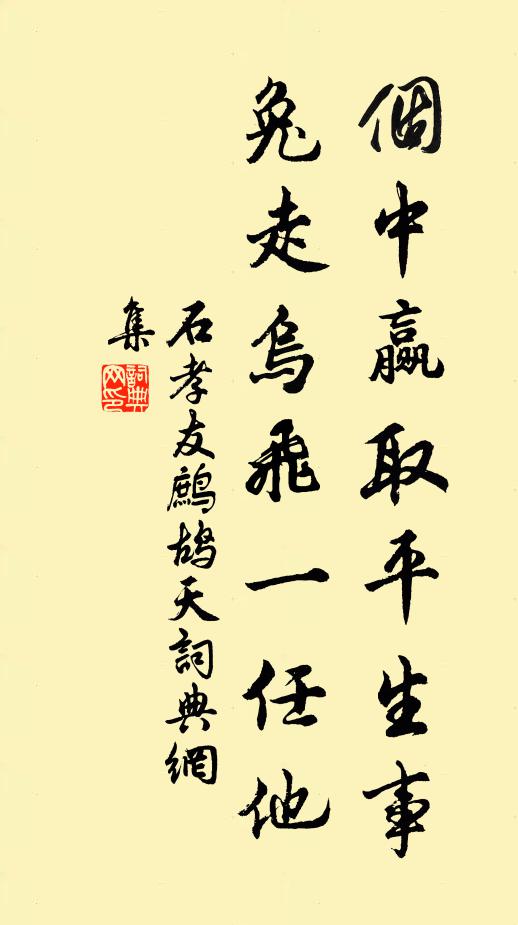 個中贏取平生事
兔走烏飛一任他
石孝友鷓鴣天詞典網
集
詞典网印